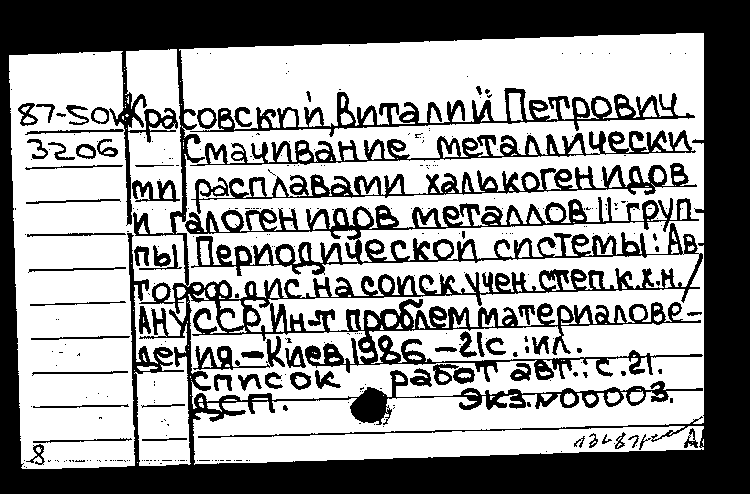 87-50к Красовский, Виталий Петрович.
3206 Смачивание металлически-
ми расплавами халькогенидов
и галогенидов металлов II груп-
пы Периодической системы: Ав-
тореф.дис.на соиск.учен.степ.к.х.н./
АН УССР, Ин-т проблем материалове-
дения.-Киев, 1986.-21с.:ил.
список работ авт.: с.21.
ДСП. экз.N00003.
8